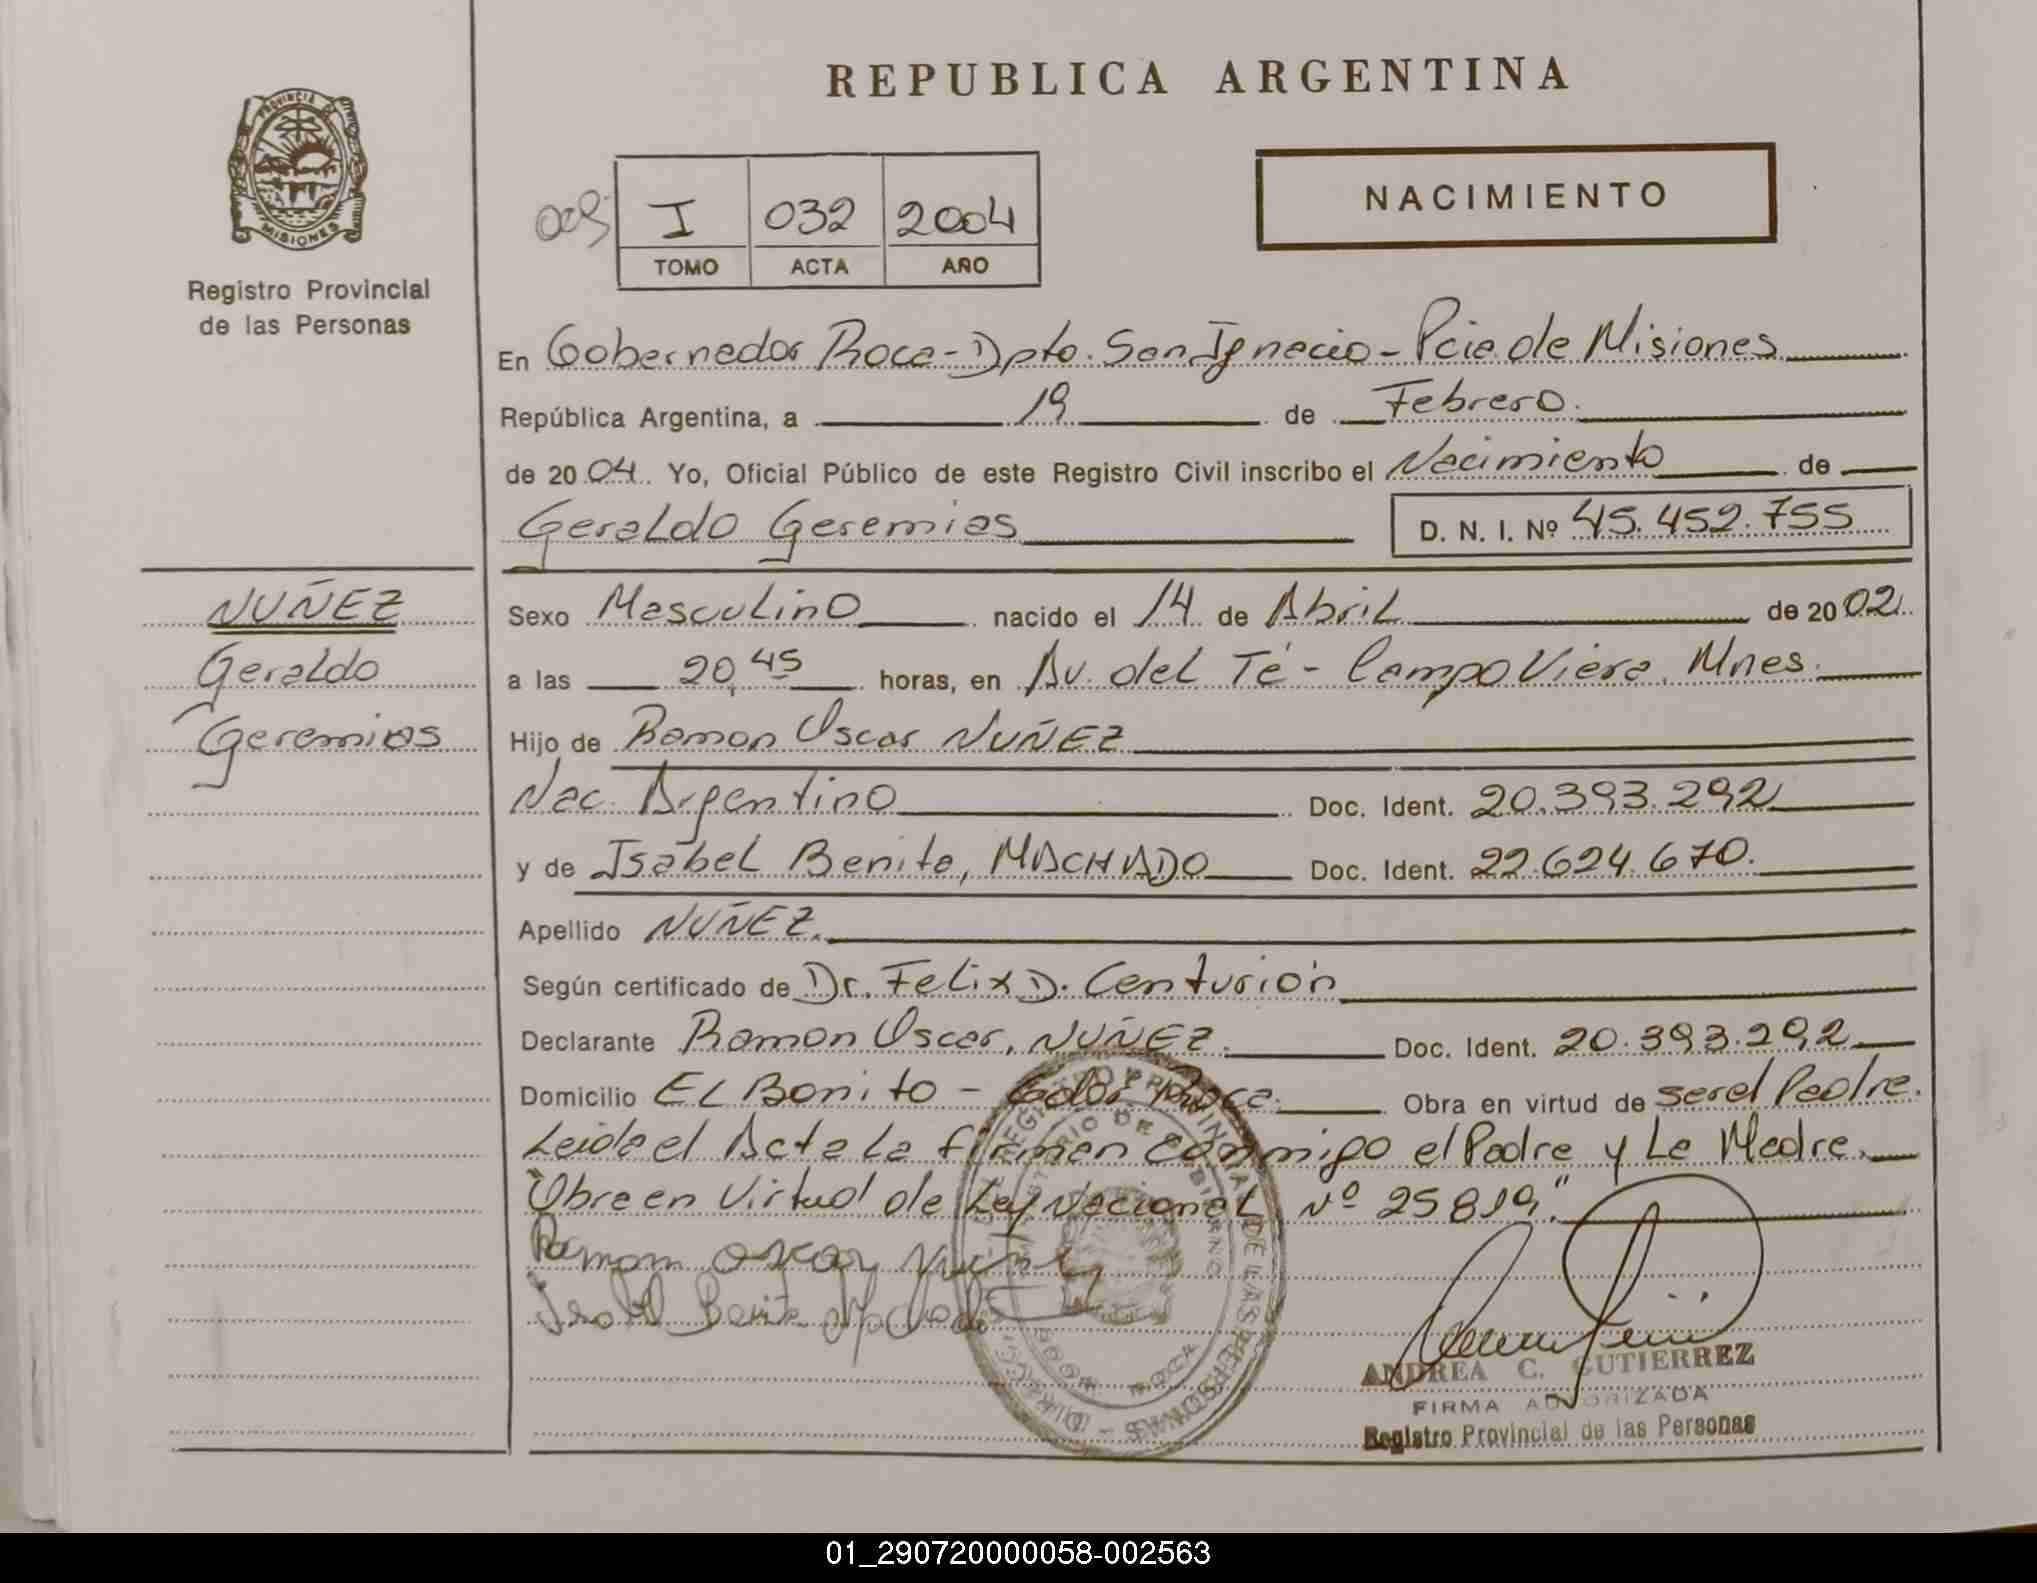 REPUBLICA ARGENTINA
PROVINCIA DE
MISIONES
Registro Provincial
de las Personas
NACIMIENTO
I 032 2004
TOMO ACTA AÑO
En Gobernador Roca - Dpto. San Ignacio - Pcia de Misiones
República Argentina, a 19 de Febrero.
de 2004. Yo, Oficial Público de este Registro Civil inscribo el Nacimiento de
Geraldo Geremias D. N. I. Nº 45.452.755
NUÑEZ
Geraldo
Geremias
Sexo Masculino nacido el 14 de Abril de 2002.
a las 20,45 horas, en Av. del Té - Campo Viera. Mnes.
Hijo de Ramon Oscar NUÑEZ
Nac. Argentino Doc. Ident. 20.393.292
y de Isabel Benita, MACHADO Doc. Ident. 22.624.670.
Apellido NUÑEZ.
Según certificado de Dr. Felix D. Centurión
Declarante Ramon Oscar, NUÑEZ. Doc. Ident. 20.393.292
Domicilio EL Bonito - Gdor Roca. Obra en virtud de ser el Padre.
Leida el Acta la firman conmigo el Padre y La Madre.
"Obra en Virtud de Ley Nacional Nº 25819."
Ramon Oscar Nuñez
Isabel Benita Machado
REGISTRO PROVINCIAL DE LAS PERSONAS
MINISTERIO DE GOBIERNO
ROCA
ANDREA C. GUTIERREZ
FIRMA AUTORIZADA
Registro Provincial de las Personas
01_290720000058-002563